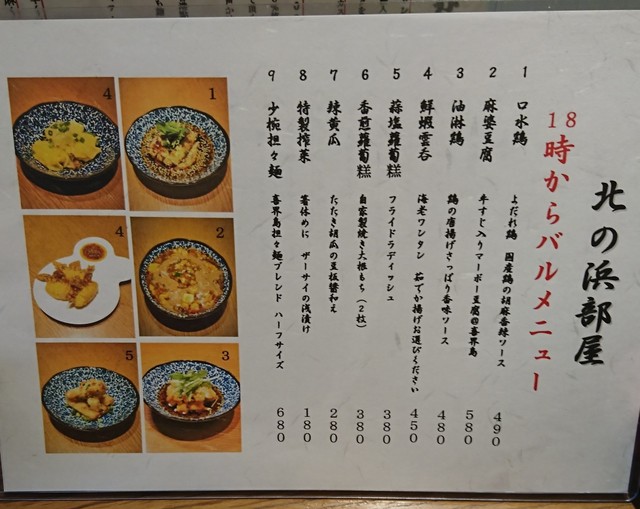 北の浜部屋
18時からバルメニュー
1 口水鶏 よだれ鶏 国産鶏の胡麻香辣ソース 490
2 麻婆豆腐 牛すじ入りマーボー豆腐の喜界島 580
3 油淋鶏 鶏の唐揚げさっぱり香味ソース 480
4 鮮蝦雲呑 海老ワンタン 茹でか揚げお選びください 450
5 蒜塩蘿蔔糕 フライドラディッシュ 380
6 香煎蘿蔔糕 自家製焼き大根もち（2枚） 380
7 辣黄瓜 たたき胡瓜の豆板醬和え 280
8 特製搾菜 箸休めに ザーサイの浅漬け 180
9 少椀担々麺 喜界島担々麺ブレンド ハーフサイズ 680
1
4
2
4
3
5